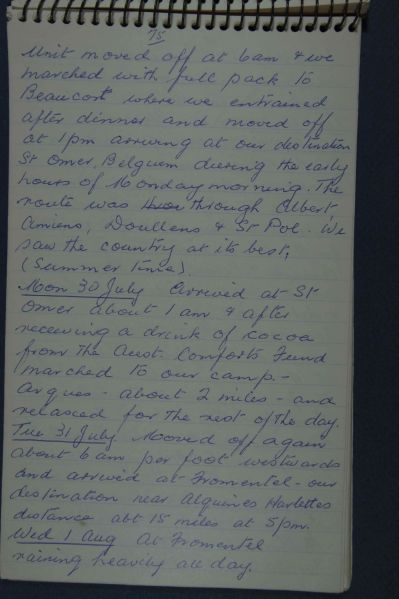 75
Unit moved off at 6am & we
marched with full pack to
Beaucort where we entrained
after dinner and moved off
at 1pm arriving at our destination
St Omer, Belguim during the early
hours of Monday morning. The
route was through Albert,
Amiens, Doullens & St Pol. We
saw the country at its best,
(Summer Time).
Mon 30 July Arrived at St
Omer about 1 am & after
receiving a drink of cocoa
from the Aust. Comforts Fund
marched to our camp. -
Arques - about 2 miles - and
relaxed for the rest of the day.
Tue 31 July Moved off again
about 6am per foot westwards
and arrived at Fromentel - our
destination near Alquines Harlettes
distance abt 15 miles at 5pm.
Wed 1 Aug At Fromentel
raining heavily all day.